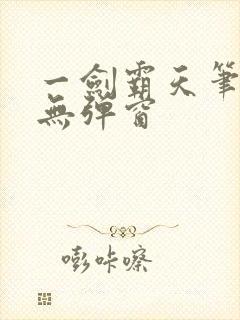 一劍霸天筆
無彈窗
嘭咔嚓